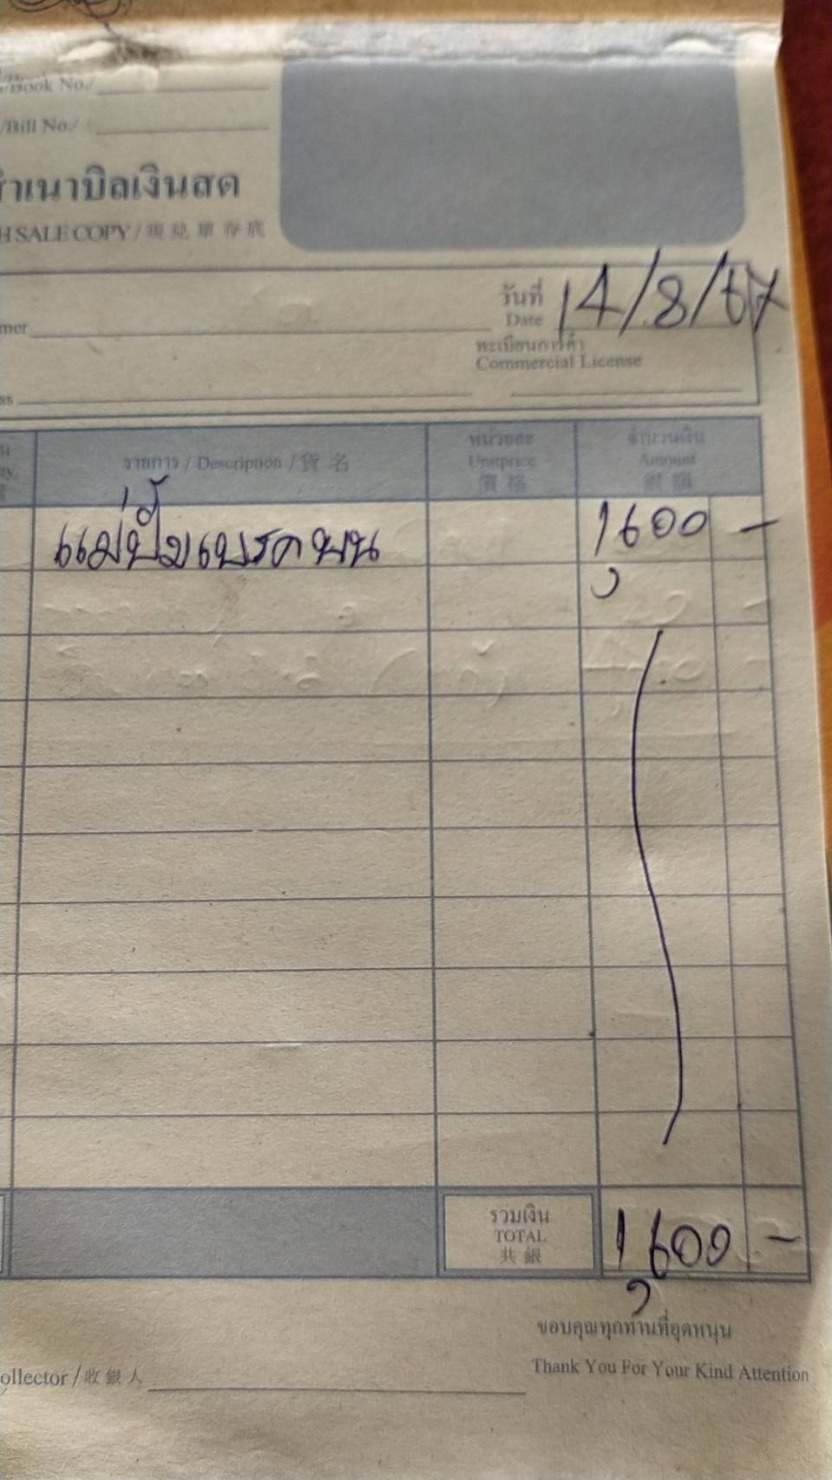 /Book No./
/Bill No./
สำเนาบิลเงินสด
H SALE COPY / 現兌單存底
วันที่ 14/8/67
Date
mer
ทะเบียนการค้า
Commercial License
ss
รายการ / Description / 貨名
หน่วยละ
Unitprice
價格
จำนวนเงิน
Amount
銀額
แม่ปั๊มเบรคบน 1,600 -
รวมเงิน
TOTAL 1,600 -
共銀
ขอบคุณทุกท่านที่อุดหนุน
ollector / 收銀人
Thank You For Your Kind Attention